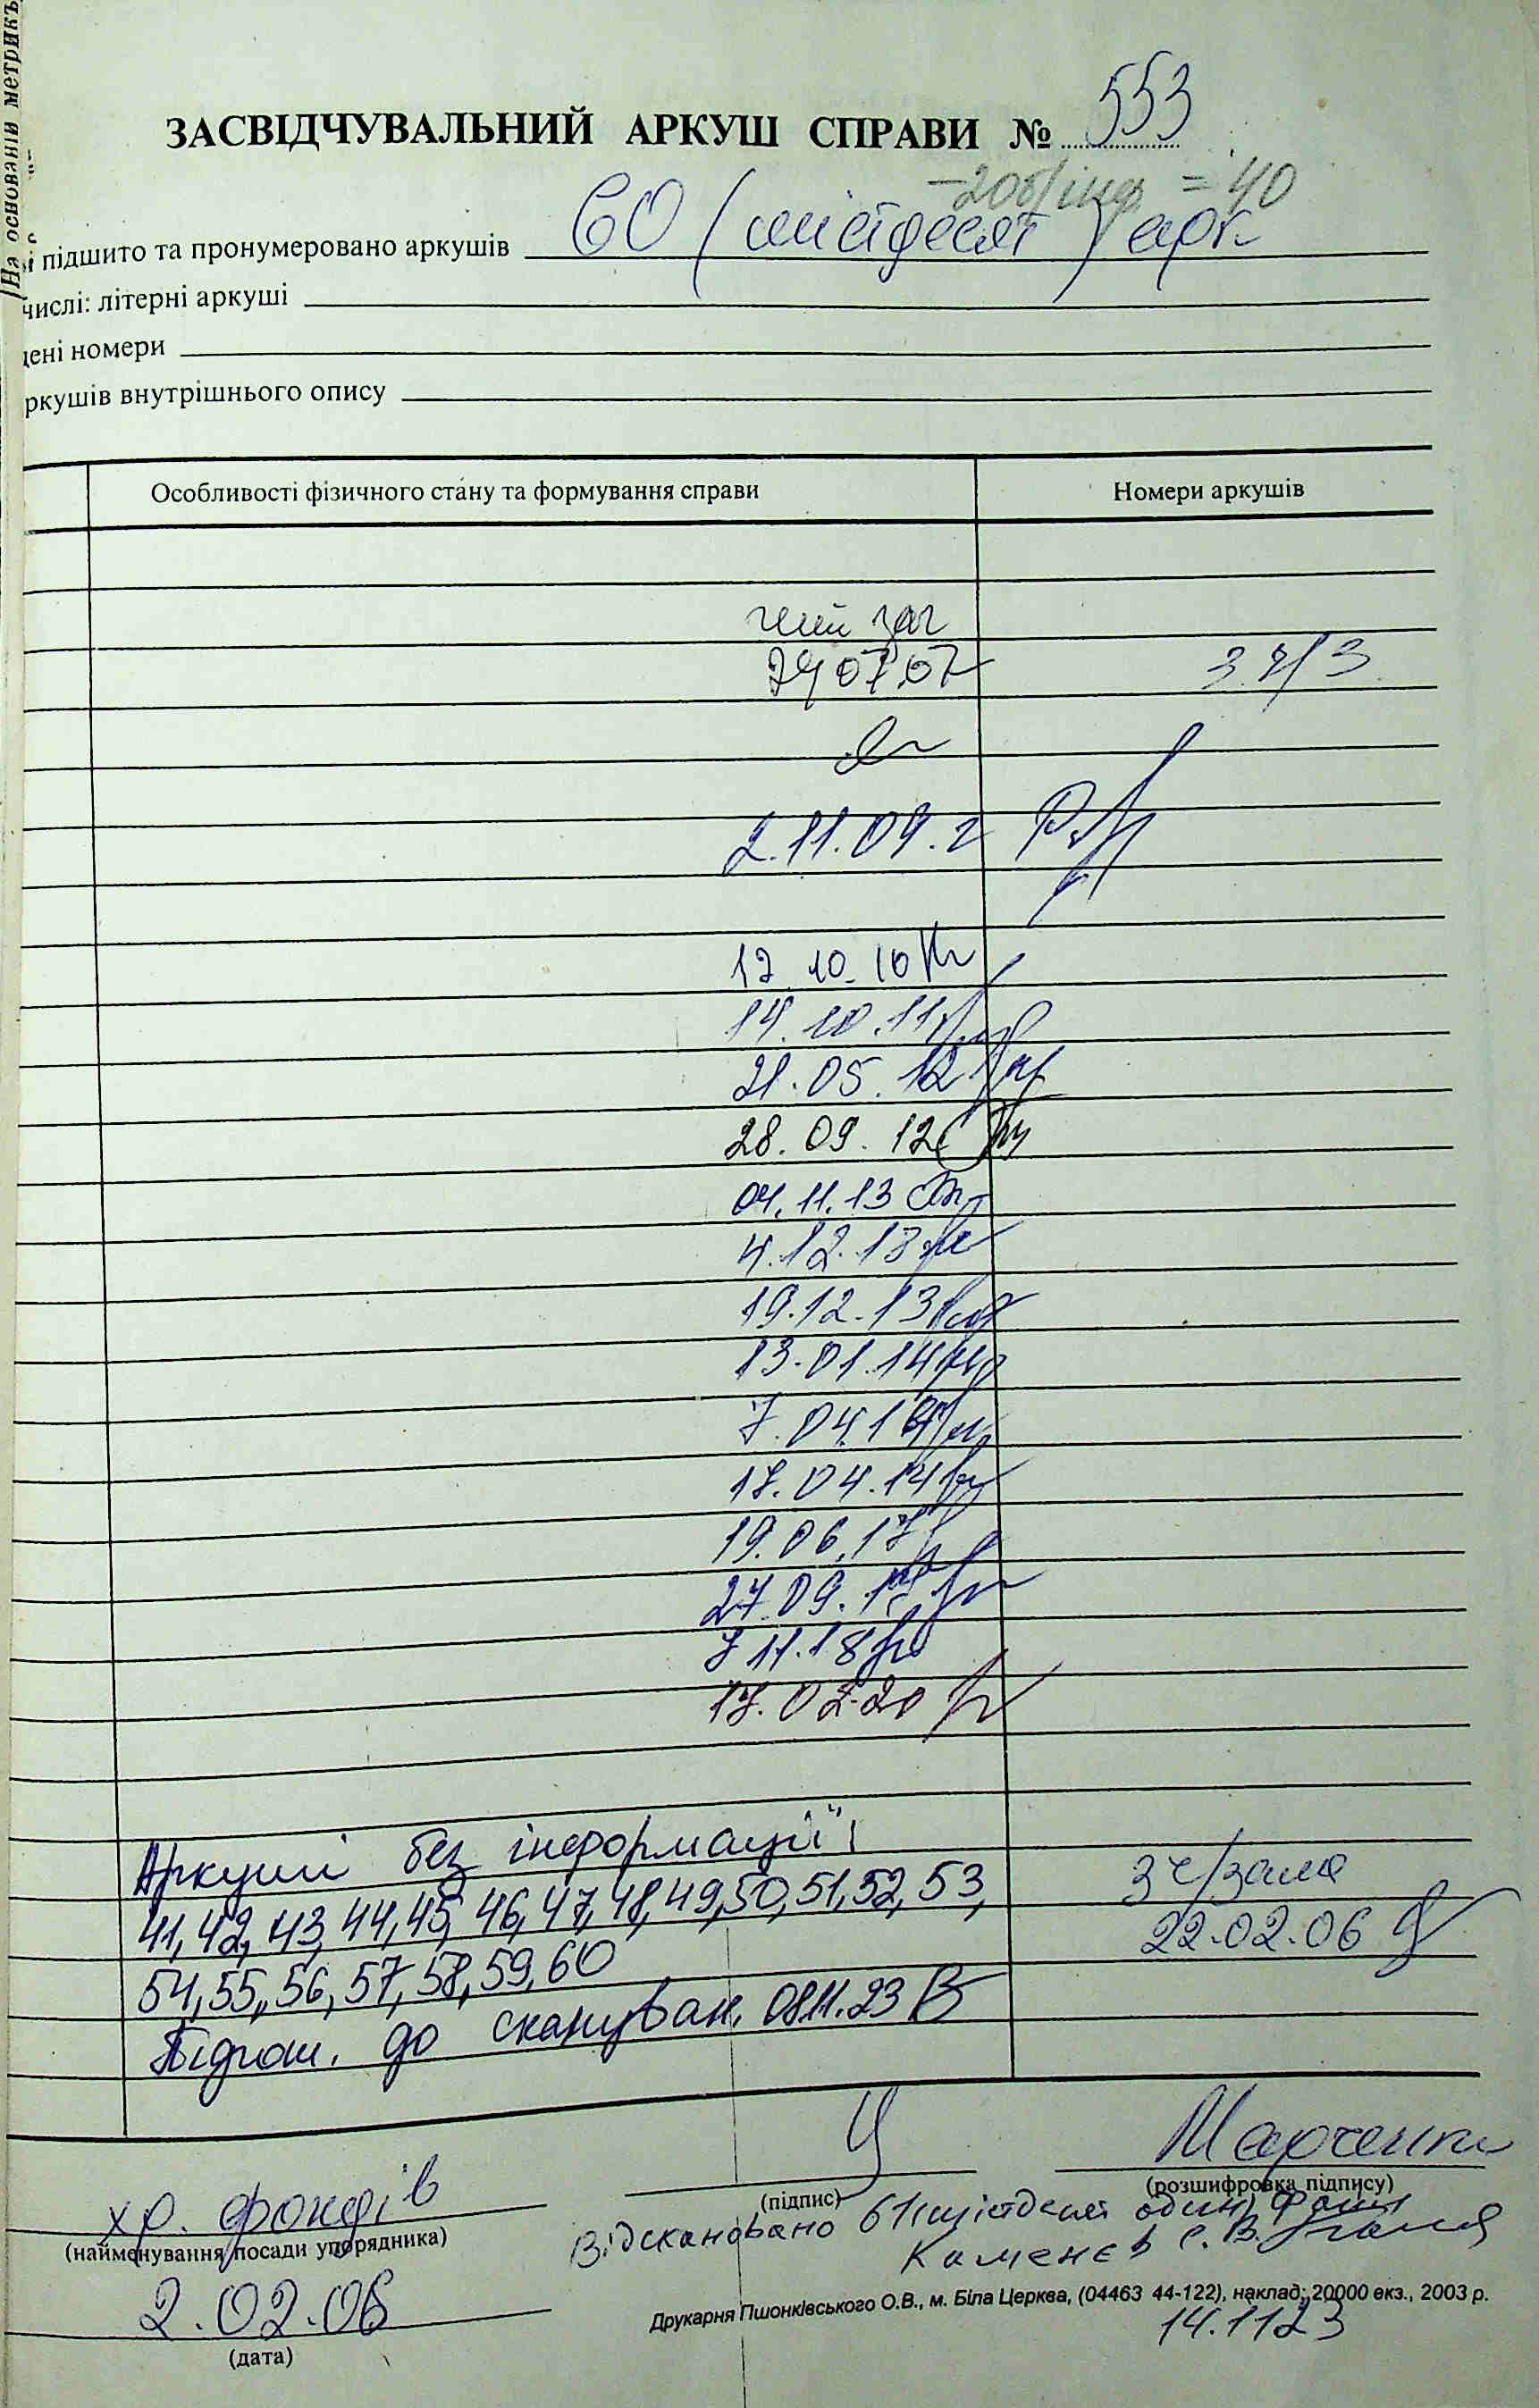 На основании метрикъ
ЗАСВІДЧУВАЛЬНИЙ АРКУШ СПРАВИ № 553
= 40
і підшито та пронумеровано аркушів 60 (шістдесят) арк
числі: літерні аркуші
цені номери
ркушів внутрішнього опису
Особливості фізичного стану та формування справи
Номери аркушів
чит зал
24 07.07
2.11.09.г
12.10.10
14.10.11
21.05.12
28.09.12
04.11.13
4.12.13
19.12.13
13.01.14
7.04.14
17.04.14
19.06.17
27.09.17
7 11.18
17.02.20
Аркуші без інформації:
41, 42, 43, 44, 45, 46, 47, 48, 49, 50, 51, 52, 53,
3 ч/зала
54, 55, 56, 57, 58, 59, 60
22.02.06
Підгот. до скануван. 08.11.23
хр. фондів
Марченко
(найменування посади упорядника)
(підпис)
(розшифровка підпису)
Відскановано 61(шістдесят один) файл
Каменєв С.В.
2.02.06
(дата)
Друкарня Пшонківського О.В., м. Біла Церква, (04463 44-122), наклад: 20000 екз., 2003 р.
14.11 23